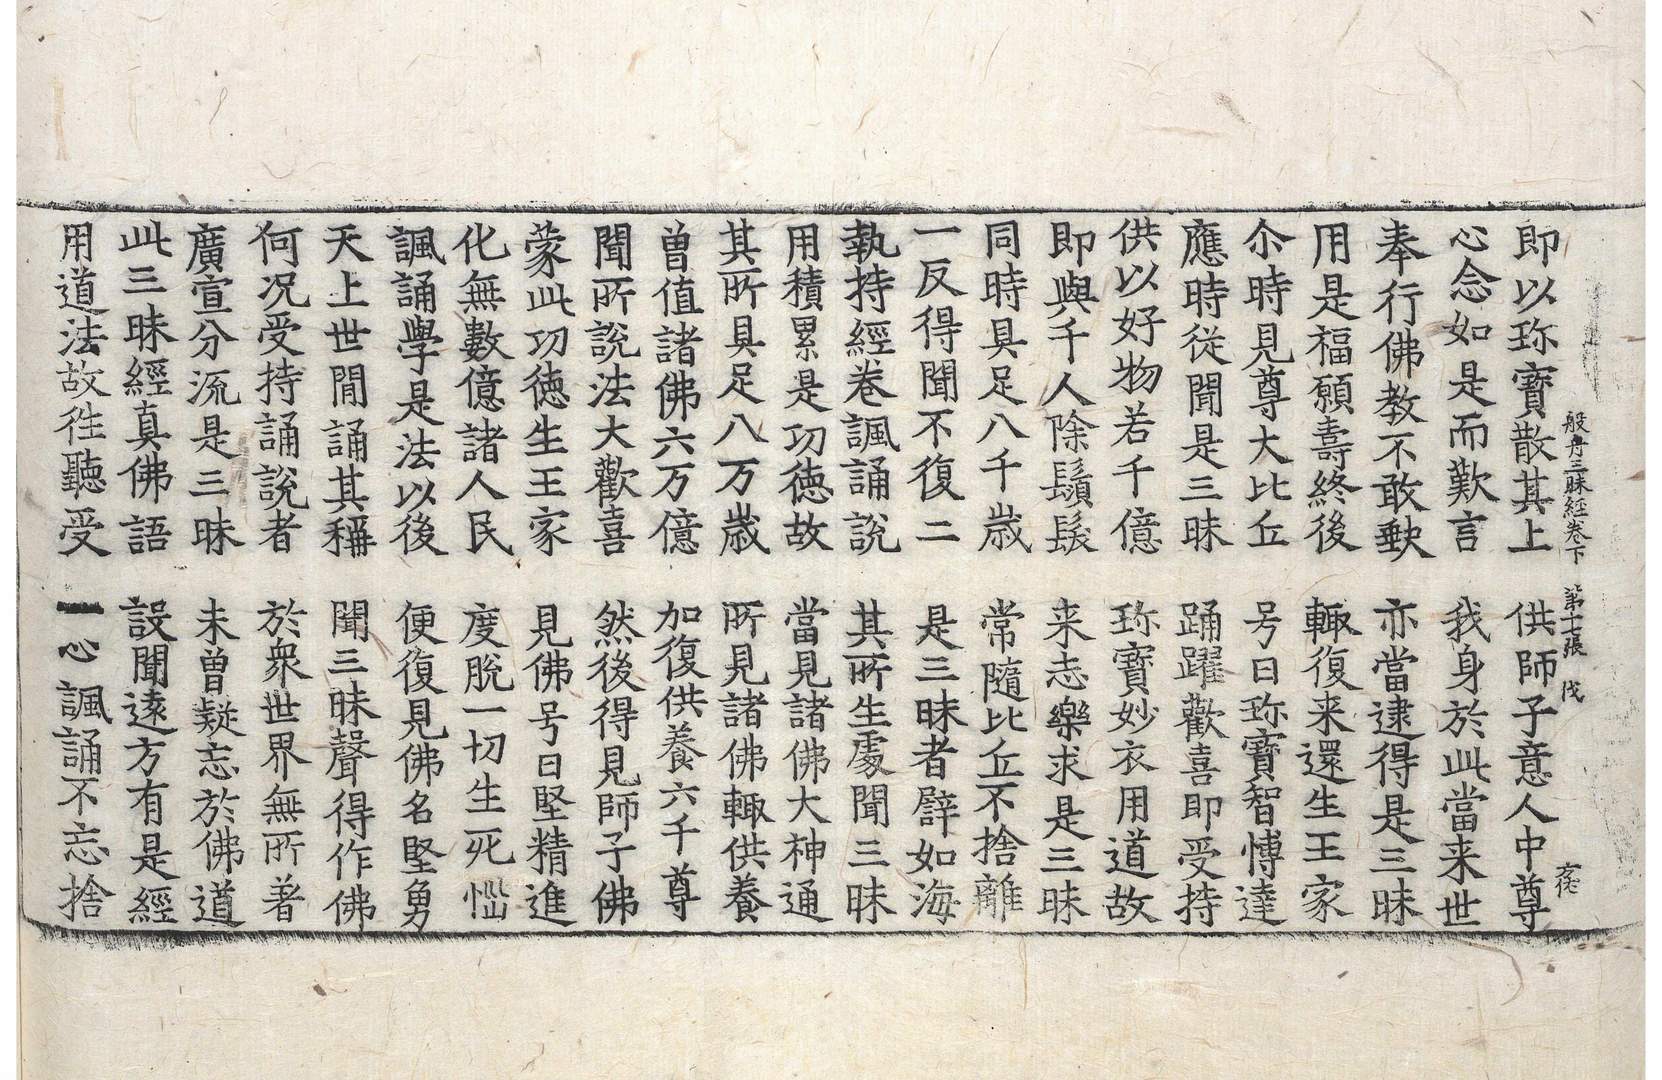 般舟三昧經卷下 第十一張 伐
即以珎寶散其上 供師子意人中尊
心念如是而歎言 我身於此當来世
奉行佛教不敢缺 亦當逮得是三昧
用是福願壽終後 輙復来還生王家
尒時見尊大比丘 号曰珎寶智愽達
應時從聞是三昧 踊躍歡喜即受持
供以好物若千億 珎寶妙衣用道故
即與千人除鬚髮 来志樂求是三昧
同時具足八千歲 常隨比丘不捨離
一反得聞不復二 是三昧者辟如海
執持經卷諷誦說 其所生處聞三昧
用積累是功徳故 當見諸佛大神通
其所具足八万歲 所見諸佛輙供養
曽值諸佛六万億 加復供養六千尊
聞所說法大歡喜 然後得見師子佛
蒙此功徳生王家 見佛号曰堅精進
化無數億諸人民 度脫一切生死惱
諷誦學是法以後 便復見佛名堅勇
天上世間誦其稱 聞三昧聲得作佛
何况受持誦說者 於衆世界無所著
廣宣分流是三昧 未曽疑忘於佛道
此三昧經真佛語 設聞遠方有是經
用道法故徃聽受 一心諷誦不忘捨